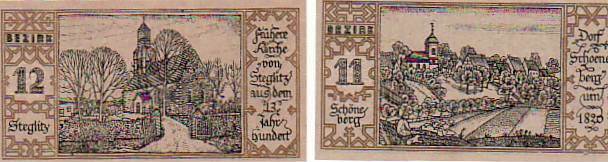 BEZIRK
12
Steglitz
Frühere
Kirche
von
Steglitz
aus dem
13.
Jahr
hundert
BEZIRK
11
Schöne-
berg
Dorf
Schoene
berg
um
1820